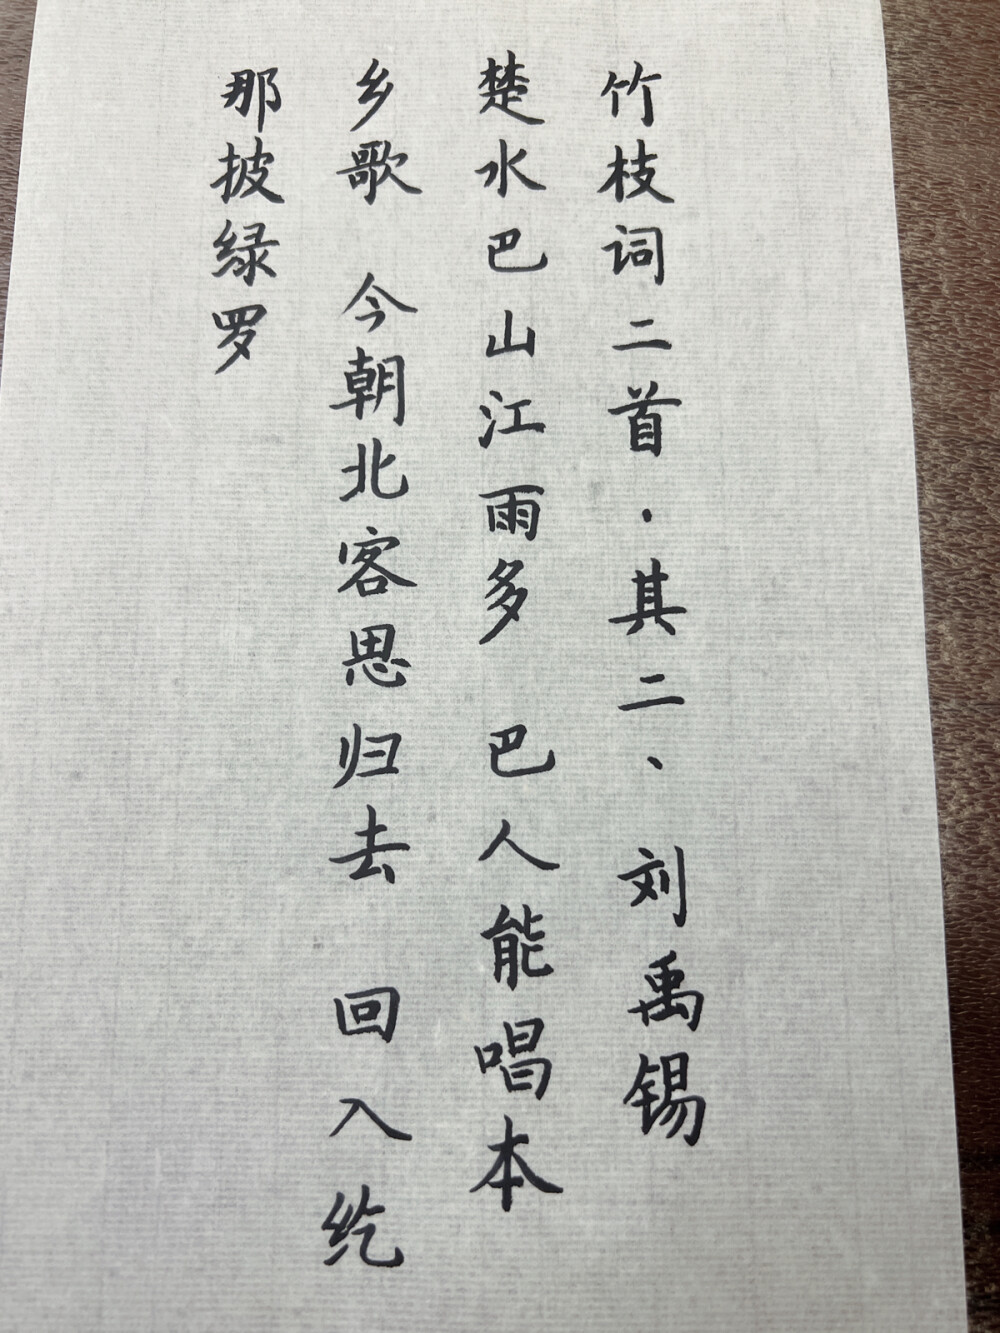 竹枝词二首·其二、刘禹锡
楚水巴山江雨多 巴人能唱本
乡歌 今朝北客思归去 回入纥
那披绿罗